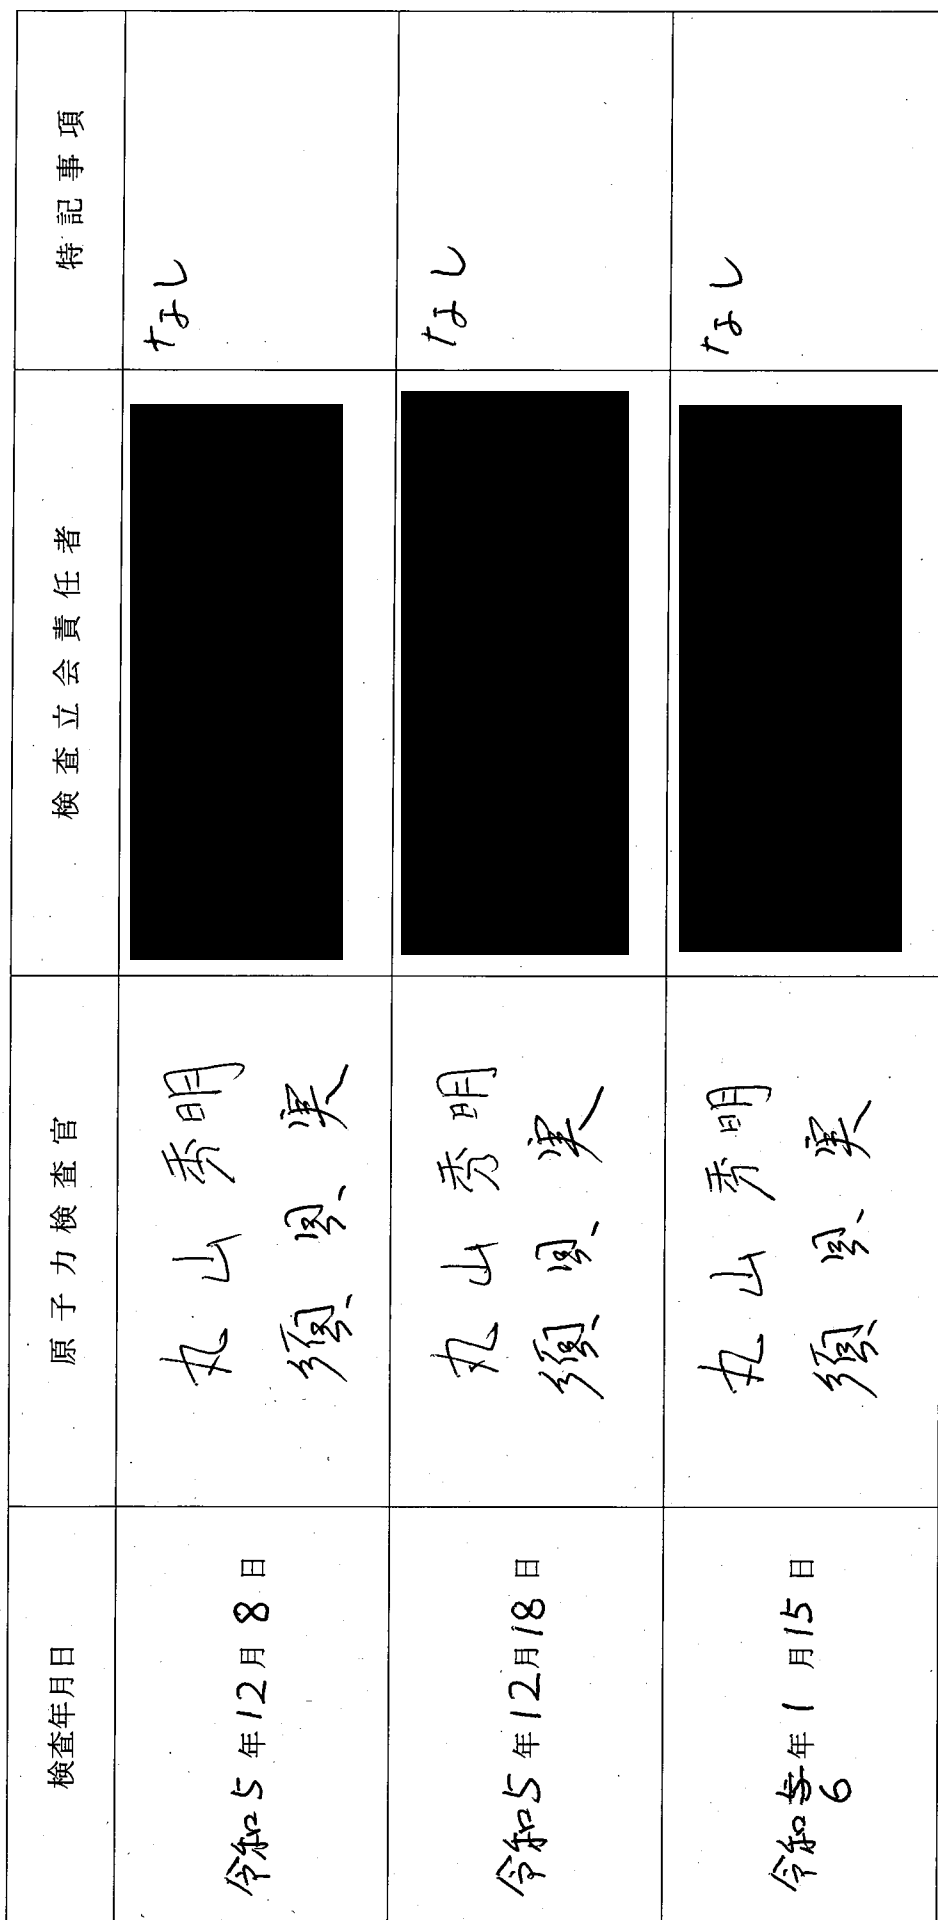 検査年月日 原子力検査官 検査立会責任者 特記事項
令和5年12月8日 丸山秀明 なし
須貝実
令和5年12月18日 丸山秀明 なし
須貝実
令和5年1月15日 丸山秀明 なし
6 須貝実